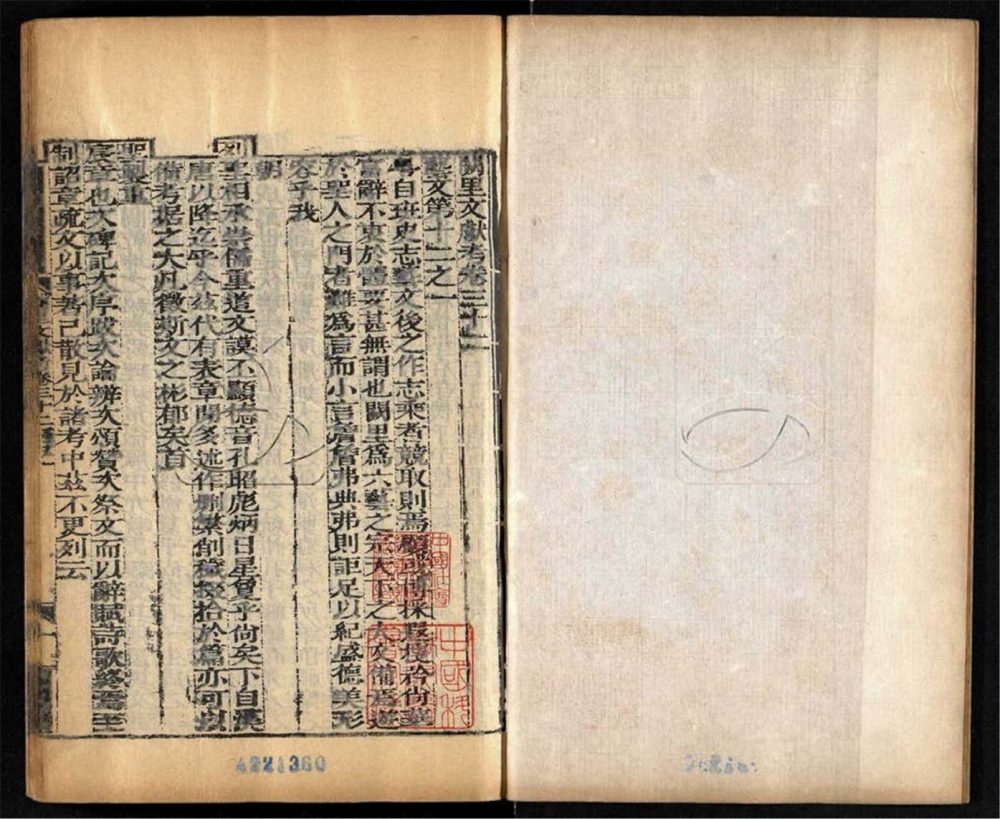 闕里文獻考卷三十二
藝文第十二之一
粵自班史志藝文後之作志乘者競取則焉顧或博採叚儍矜尚華
富辭不衷於體要甚無謂也闕里爲六藝之宗天下之大文備焉遊
於聖人之門者難爲言而小言詹詹弗典弗則詎足以紀盛德美形
容乎我
朝
列聖相承崇儒重道文謨丕顯德音孔昭彪炳日星敻乎尙矣下自漢
唐以降迄乎今茲代有表章間多述作刪蘩創穢掇拾於篇亦可以
備考據之大凡徵斯文之彬郁矣首
聖製重
宸章也次碑記次序跋次論辨次頌贊次祭文而以辭賦詩歌終焉至
制詔章疏文以事著已散見於諸考中茲不更列云
4221360